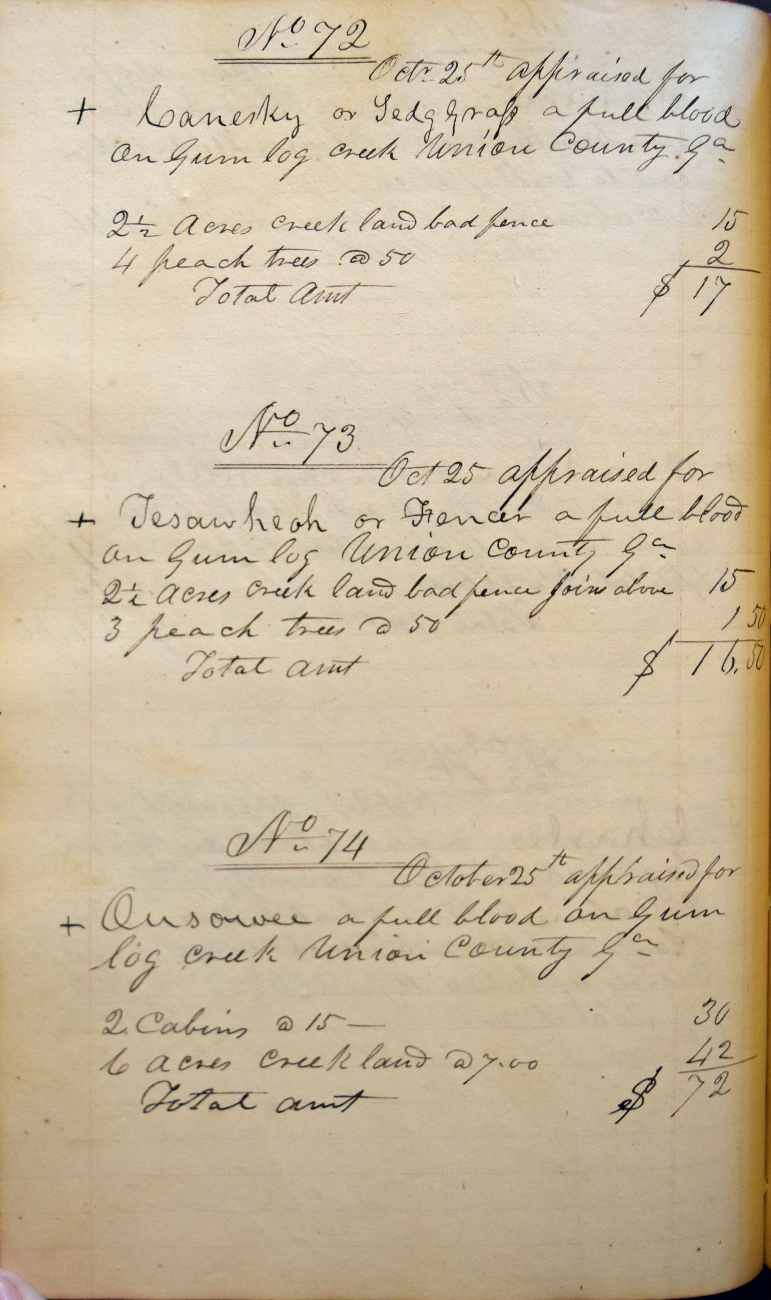 No 72
Octr 25th appraised for
+ Canesky or Sedggrass a full blood
on Gum log creek Union County Ga
2½ Acres creek land bad fence 15
4 peach trees @ 50 2
Total Amt $ 17
No 73
Oct 25 appraised for
+ Tesawheoh or Fencer a full blood
on Gum log Union County Ga
2½ Acres creek land bad fence joins above 15
3 peach trees @ 50 1 50
Total amt $ 16.50
No 74
October 25th appraised for
+ Ousowee a full blood on Gum
log creek Union County Ga
2 Cabins @ 15 — 30
6 acres creek land @ 7.00 42
Total amt $ 72